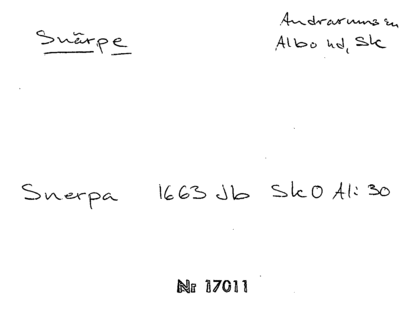 Snärpe
Andrarums sn
Albo hd, Sk
Snerpa 1663 Jb SkO Al: 30
Nr 17011